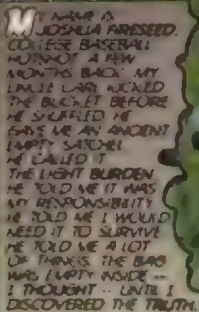 MY NAME IS
JOSHUA FIRESEED.
COLLEGE BASEBALL
HOTSHOT. A FEW
MONTHS BACK MY
UNCLE CARL KICKED
THE BUCKET. BEFORE
HE SHUFFLED HE
GAVE ME AN ANCIENT
EMPTY SATCHEL
HE CALLED IT
THE LIGHT BURDEN
HE TOLD ME IT WAS
MY RESPONSIBILITY
HE TOLD ME I WOULD
NEED IT TO SURVIVE
HE TOLD ME A LOT
OF THINGS. THE BAG
WAS EMPTY INSIDE --
I THOUGHT -- UNTIL I
DISCOVERED THE TRUTH.